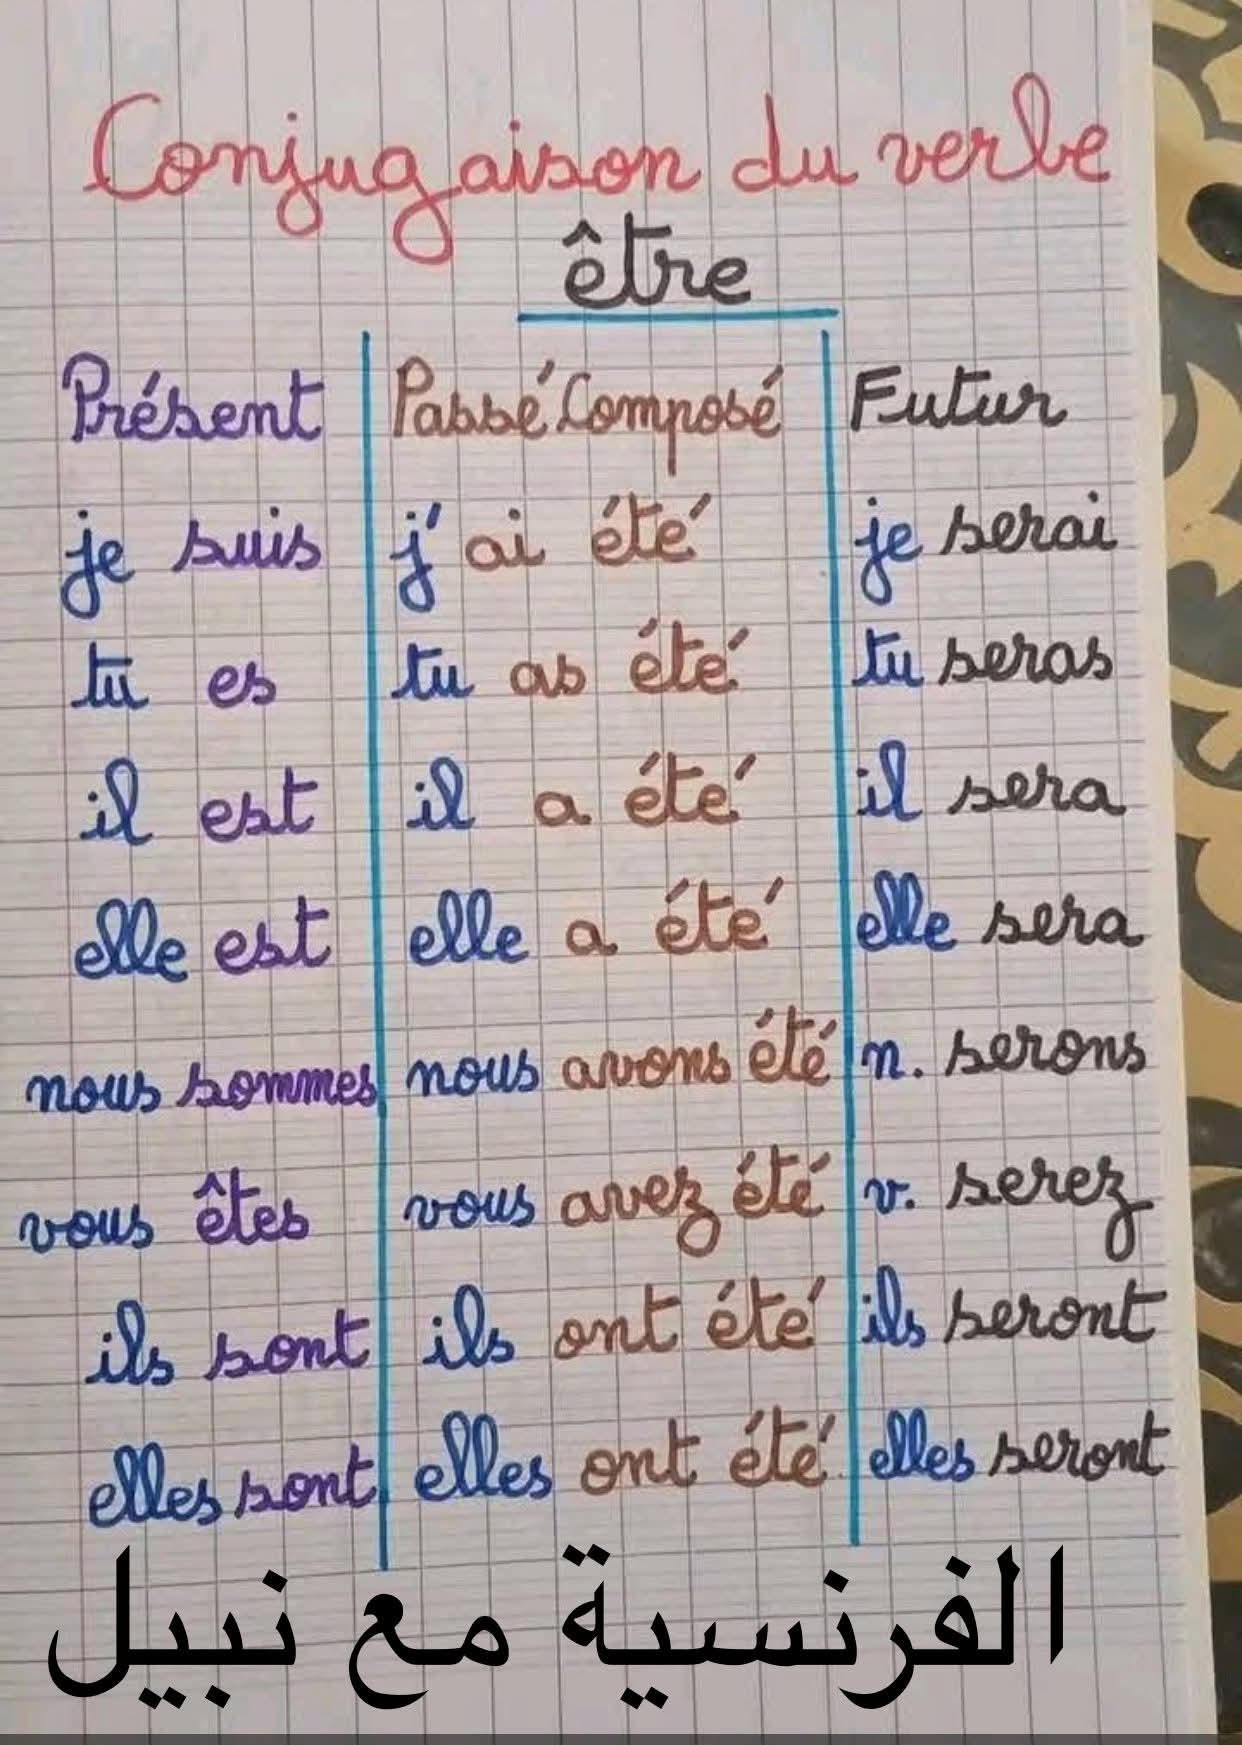 Conjugaison du verbe
être
Présent Passé Composé Futur
je suis j'ai été je serai
tu es tu as été tu seras
il est il a été il sera
elle est elle a été elle sera
nous sommes nous avons été n. serons
vous êtes vous avez été v. serez
ils sont ils ont été ils seront
elles sont elles ont été elles seront
الفرنسية مع نبيل